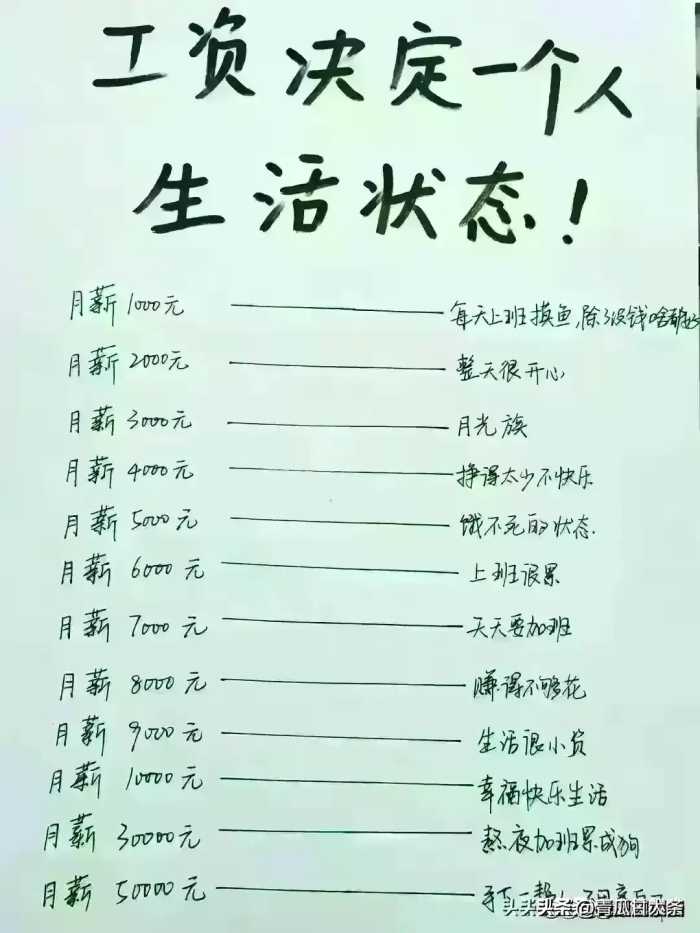 工资决定一个人
生活状态！
月薪1000元 每天上班摸鱼,除了没钱啥都好
月薪2000元 整天很开心
月薪3000元 月光族
月薪4000元 挣得太少不快乐
月薪5000元 饿不死的状态.
月薪6000元 上班很累
月薪7000元 天天要加班
月薪8000元 赚得不够花
月薪9000元 生活很小资
月薪10000元 幸福快乐生活
月薪30000元 熬夜加班累成狗
月薪50000元
头条@青瓜白水条